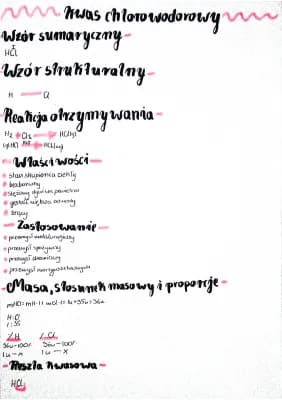 Kwas chlorowodorowy
Wzór sumaryczny-
HCl
Wzór strukturalny-
H — Cl
Reakcja otrzymywania-
H₂ + Cl₂ → HCl(g)
HCl(g) H₂O → HCl(aq)
Właściwości-
stan skupienia ciekły
bezbarwny
stężony dymi na powietrzu
gęstość większa od wody
żrący
Zastosowanie-
przemysł
przemysł spożywczy
przemysł
przemysł
Masa, stosunek masowy i proporcje-
mHCl= mH·1+ mCl·1= 1u+35u=36u
H:Cl
1:35
%H %Cl
36u-100% 36u-100%
1u-x 1u-x
-Reszta kwasowa-
HCl